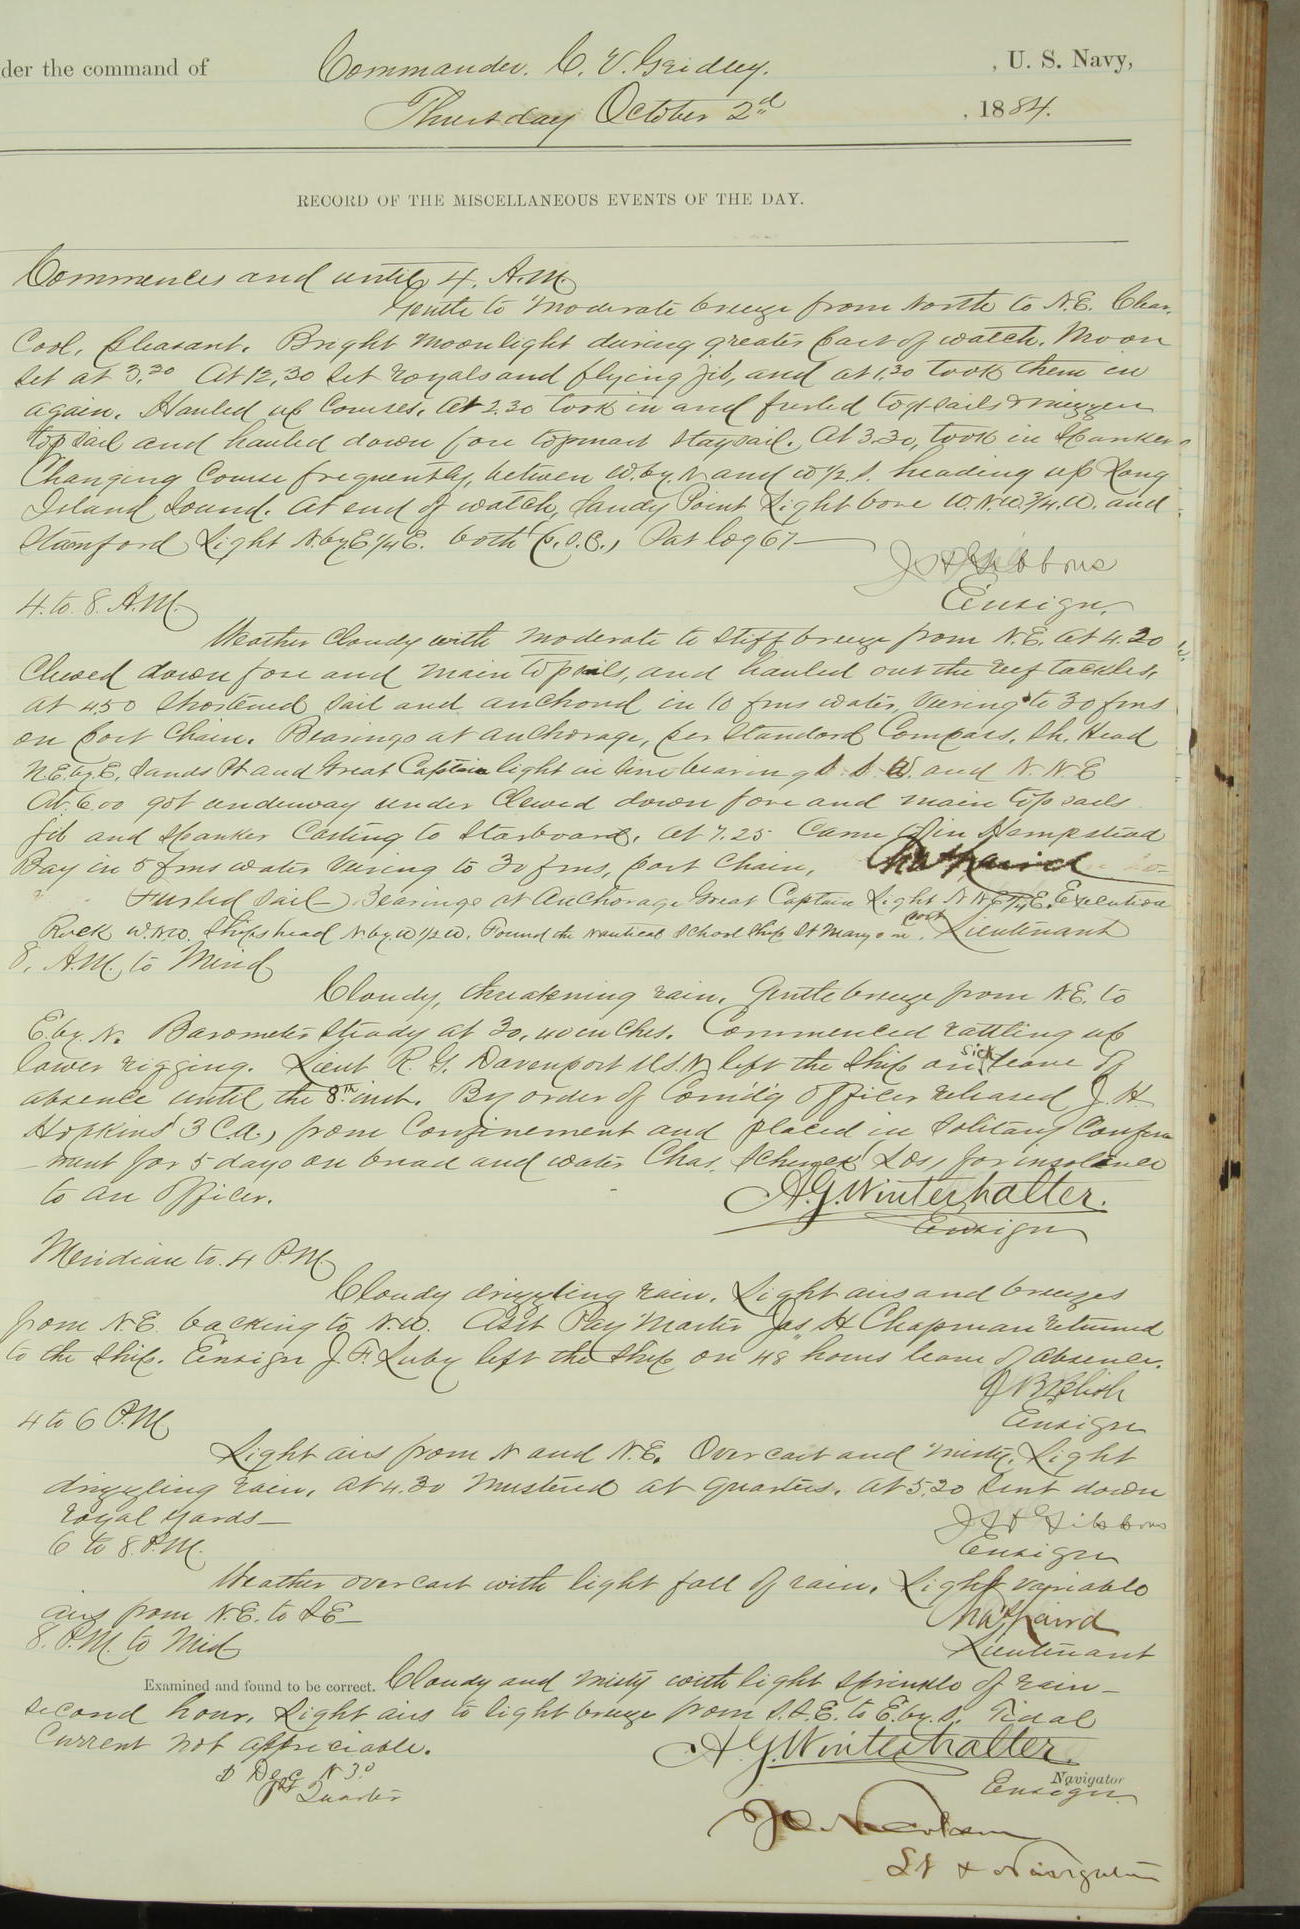 der the command of Commander. C. V. Gridley. , U. S. Navy,
Thursday October 2d , 1884.
RECORD OF THE MISCELLANEOUS EVENTS OF THE DAY.
Commences and until 4. A.M.
Gentle to moderate breeze from North to N.E. Clear,
Cool, pleasant. Bright moonlight during greater part of watch. Moon
set at 3.30 At 12.30 set royals and flying jib, and at 1.30 took them in
again. Hauled up Courses. At 2.30 took in and furled top-sails & mizzen
topsail and hauled down fore topmast staysail. At 3.30, took in Spanker
Changing Course frequently, between W. by N and W 1/2. S. heading up Long
Island Sound. At end of watch, Sandy Point Light bore W.N.W. 3/4. W. and
Stamford Light N. by E 1/4 E. both (p.s.c.), Pat log 67
J H Gibbons
Ensign.
4. to 8. A.M.
Weather Cloudy with moderate to stiff breeze from N.E. At 4.20
Clewed down fore and main topsails, and hauled out the reef tackles,
at 4.50 shortened sail and anchored in 10 fms water, veering to 30 fms
on port Chain. Bearings at anchorage, per Standard Compass. Sh. Head
N.E. by. E. Sands Pt and Great Captain light in line bearing S. S. W. and N. N. E
At 6.00 got underway under Clewed down fore and main topsails
jib and spanker Casting to starboard. At 7.25 Came to in Hampstead
Bay in 5 fms water veering to 30 fms, port Chain,
Furled sail Bearings at Anchorage Great Captain Light N N E 1/4 E. Execution
Rock W.N.W. Ships head N. by. W 1/2 W. Found the Nautical School Ship St Mary's in port. Lieutenant
8. A.M. to Merid
Cloudy, threatening rain. Gentle breeze from N.E. to
E. by. N. Barometer steady at 30.40 inches. Commenced rattling up
lower rigging. Lieut R. G. Davenport U.S.N. left the Ship on sick leave of
absence until the 8th inst. By order of Com'd'g Officer released J. H.
Hopkins 3 C.a., from Confinement and placed in Solitary Confine
-ment for 5 days on bread and water Chas. Lds, for insolence
to an Officer.
A. G. Winterhalter.
Ensign
Meridian to. 4 P.M
Cloudy drizzling rain. Light airs and breezes
from N.E. backing to N.W. Ass't Pay Master Jas. H Chapman returned
to the Ship. Ensign J. F. Luby left the Ship on 48 hours leave of absence.
Ensign
4 to 6 P.M
Light airs from N and N.E. Overcast and misty. Light
drizzling rain. At 4.30 mustered at quarters. At 5.20 sent down
royal yards
J H Gibbons
Ensign
6 to 8. P.M.
Weather overcast with light fall of rain. Light variable
airs from N.E. to S E
Chas Laird
Lieutenant
8. P.M. to Mid
Examined and found to be correct. Cloudy and misty with light sprinkle of rain
second hour. Light airs to light breeze from S.S.E. to E. by. S. Tidal
Current not appreciable.
A G. Winterhalter.
Dec N 3°
1st Quarter
Navigator
Ensign
Lt & Navigator